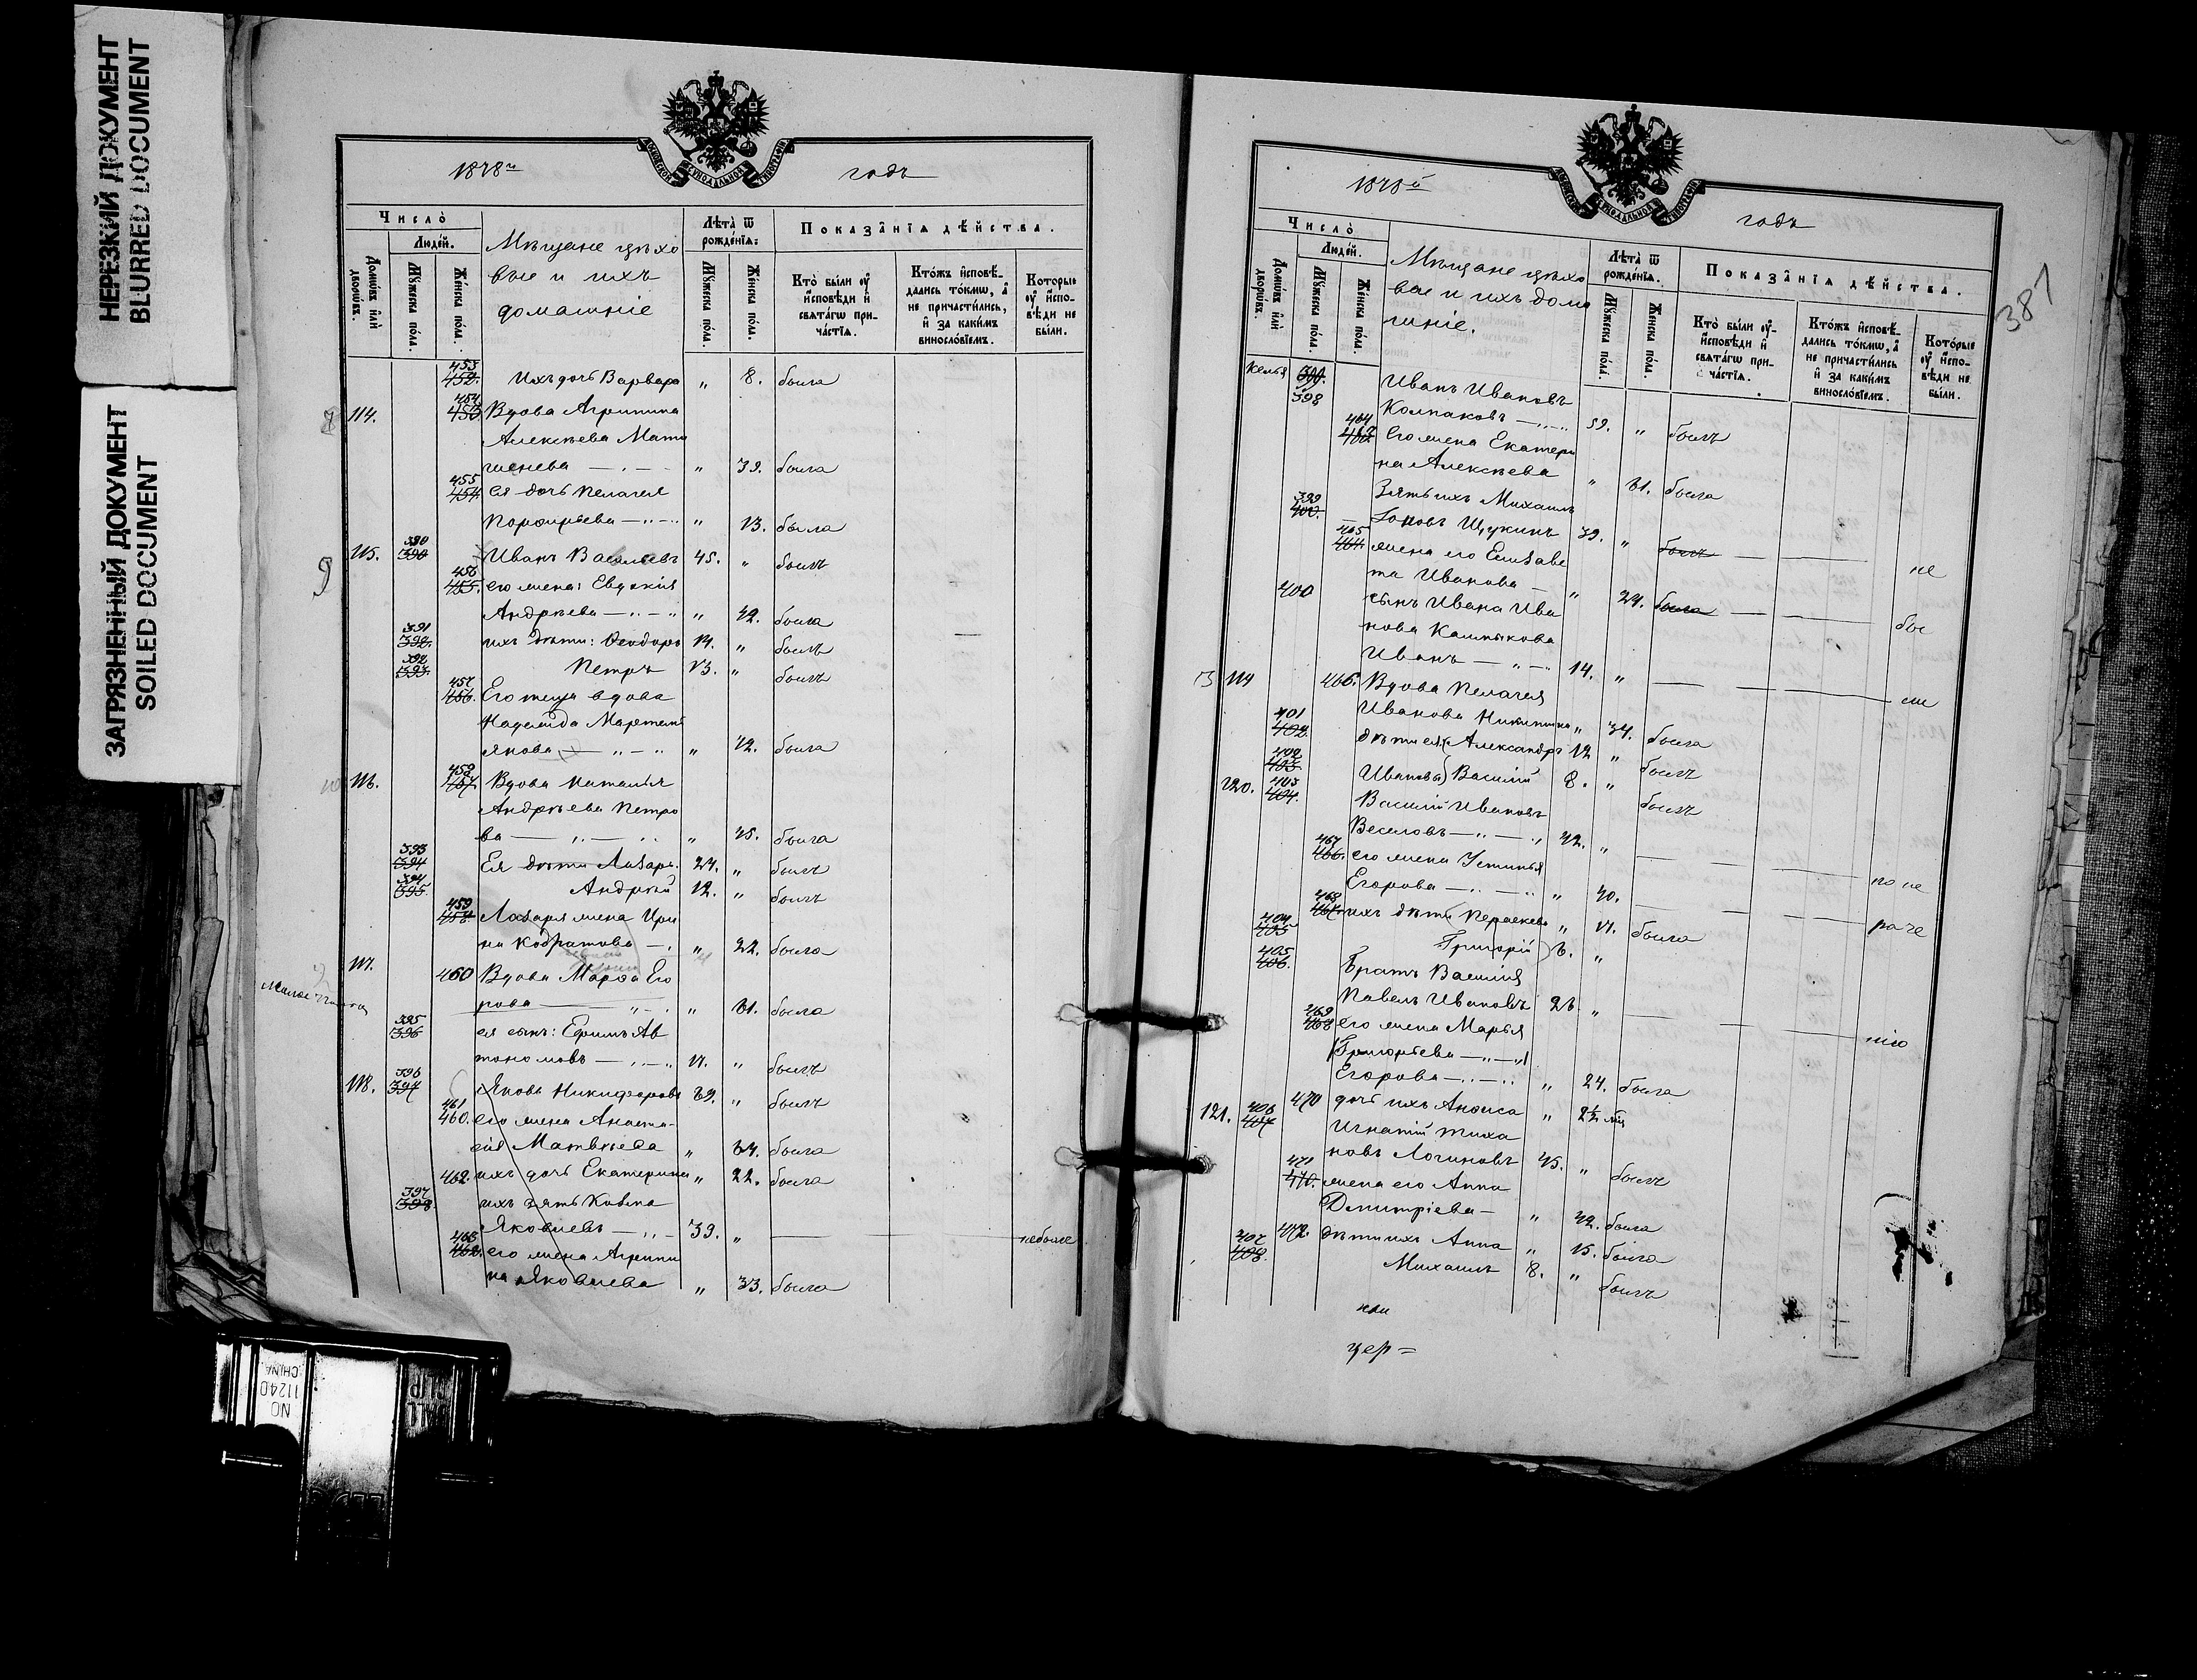 НЕРЕЗКИЙ ДОКУМЕНТ
BLURRED DOCUMENT
ЗАГРЯЗНЕННЫЙ ДОКУМЕНТ
SOILED DOCUMENT
МОСКОВСКОЙ СѴНОДАЛЬНОЙ ТИПОГРАФІИ
1878й годъ
Число̀
Людей.
Домѡвъ и҆лѝ дворѡвъ.
Мꙋжеска пола.
Женска пола.
Мѣщане цѣхо
вые и ихъ
домашніе
Лѣта̀ ѿ рожденїѧ:
Мꙋжеска пола.
Женска пола.
Показанїѧ дѣйства.
Кто̀ были ᲂу҆ исповѣди и свѧтагѡ причастїѧ.
Ктожъ исповѣдались токмѡ, а не причастились, и за какимъ винословїемъ.
Которые ᲂу҆ исповѣди не были.
453 452. Ихъ дочь Варвара " 8. была
114. 454 453. Вдова Агрипина
Алексѣева Мати
шенева " 39. была
455 454. ея дочь Пелагея
Порфирьева " 13. была
115. 390 Иванъ Васильевъ 45. " былъ
456 455. его жена: Евдокія
Андрѣева " 42. была
391 392. ихъ дѣти: Ѳеодоръ 14. " былъ
392 393. Петръ 13. " былъ
457 456. Его теща вдова
Надежда
" 72. была
116. 458 457. Вдова Наталья
Андрѣева Петро
ва " 45. была
393 394 Ея дѣти Лазарь. 24. " былъ
394 395. Андрей 12. " былъ
459 458. Лазаря жена Ири
на Кодратова " 22. была
117. 460 Вдова Марѳа Его
рова " 61. была
395 396 ея сынъ: Ефимъ Ав
тономовъ 17. " былъ
118. 396 397 Яковъ Никифоровъ 69. " былъ
461 460. его жена Анаста-
сія Матвѣева " 64. была
462. ихъ дочь Екатерина " 22. была
397 398 ихъ зять Козма
Яковлевъ 39. " небыле
463 462. его жена Агрипи
на Яковлева " 33. была
1878й годъ
387
Число̀
Людей.
Домѡвъ и҆лѝ дворѡвъ.
Мꙋжеска пола.
Женска пола.
Мѣщане цѣхо
вые и ихъ дома
шніе.
Лѣта̀ ѿ рожденїѧ.
Мꙋжеска пола.
Женска пола.
Показанїѧ дѣйства.
Кто̀ были ᲂу҆ исповѣди и свѧтагѡ причастїѧ.
Ктожъ исповѣдались токмѡ, а не причастились и за какимъ винословїемъ.
Которые ᲂу҆ исповѣди не были.
Келья 399. 398 Иванъ Ивановъ
Колпаковъ 59. " былъ
464 Его жена Екатери
на Алексѣева " 61. была
399 400. Зять ихъ Михаилъ
Щукинъ 39. " былъ не
465 464. жена его Елизаве
та Иванова " 24. была бы
400 сынъ Ивана Ива
нова
Иванъ 14. " ли
466. Вдова Пелагея
Иванова " 34. была
401 402. дѣти ея: Александръ 12 " былъ
402 403. Ивановы) Василій 8. " былъ
120. 403 404. Василій Ивановъ
Веселовъ 42. " по не
467 466. его жена Устинья
Егорова " 40. раче
468 467. ихъ дѣти Пераскева " 17. была
404 405 Григорій 6. "
405 406. Братъ Василія
Павелъ Ивановъ 26. " нію
469 468 его жена Марья
(Григорьева)
Егорова " 24. была
470 дочь ихъ Анѳиса " 2½
121. 406 407 Игнатій Тиха
новъ Логиновъ 45. " былъ
471 470. жена его Анна
Димитріева " 42. была
472. дѣти ихъ Анна " 15. была
407 408. Михаилъ 8. " былъ
цер =
NO. 11240
CHINA